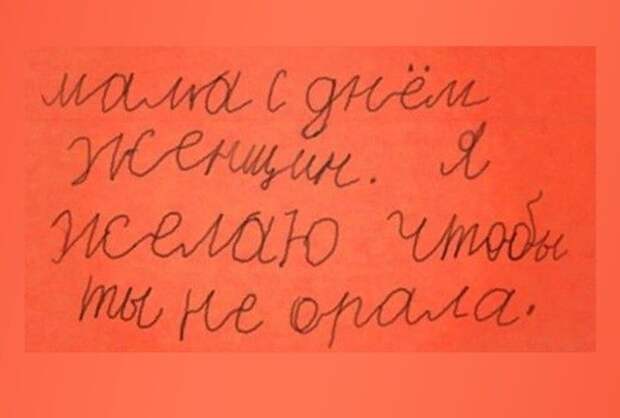 мама с днём
женщин. Я
желаю чтобы
ты не орала.